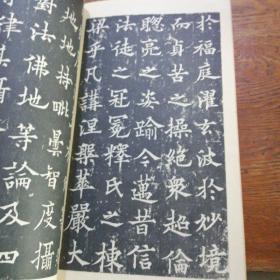 於福庭濯玄波於妙境
而貞苦之操絕衆超倫
聦亮之姿踰今邁昔信
法徒之冠冕釋氏之棟
梁乎凡講涅槃華嚴大
地地持毗曇智度攝
對法佛地等論及四
律其